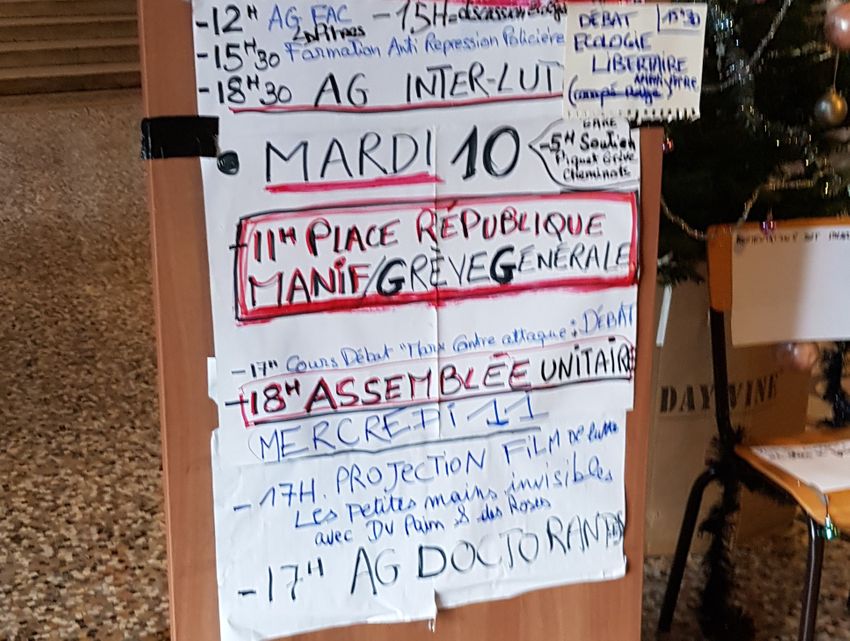 -12H AG FAC -15H=
-15H30 Formation Anti Repression Policière
-18H30 AG INTER-LUT
DÉBAT 15H30
ECOLOGIE
LIBERTAIRE
• MARDI 10
GARE
-5H Soutien
Piquet Grève
Cheminots
-11H PLACE RÉPUBLIQUE
MANIF/GRÈVE GÉNÉRALE
-17H Cours Débat "Marx Contre attaque: DÉBAT
-18H ASSEMBLÉE UNITAIR
MERCREDI 11
-17H. PROJECTION FILM De lutte
Les Petites mains invisibles
avec Du Pain & des Roses
-17H AG DOCTORANTS
DAY WINE